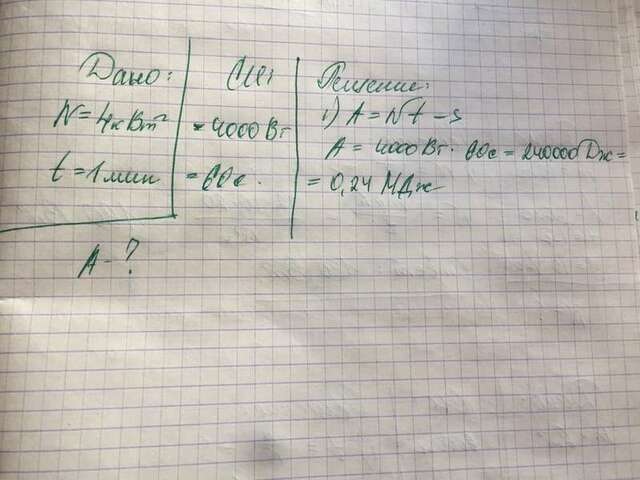 Дано:
N = 4кВт
t = 1мин
A - ?
СИ
= 4000 Вт
= 60с.
Решение:
1) A = Nt
A = 4000 Вт · 60с = 240000 Дж =
= 0,24 МДж